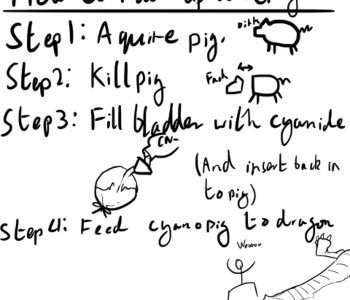 How to
Step1: Aquire pig. Oink
Step2: Kill pig
Step3: Fill bladder with cyanide
CN-
(And insert back in
to pig)
Step4: Feed cyanopig to dragon